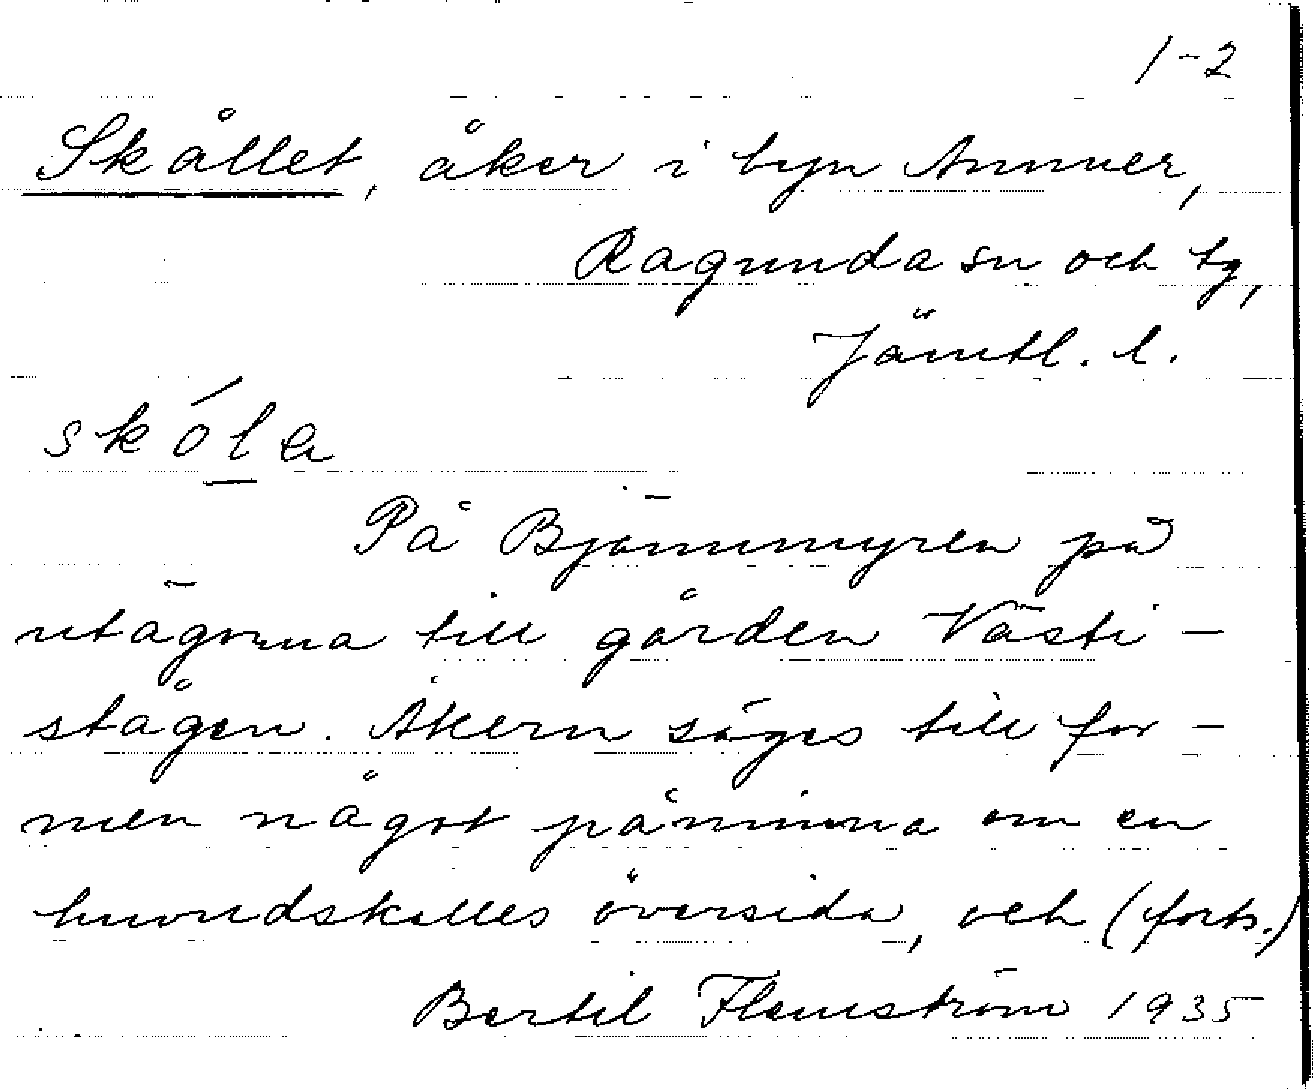 1-2
Skållet, åker i byn Ammer,
Ragunda sn och tg,
Jämtl. l.
skóla
På Bjömmyren på
utägorna till gården Västi-
stågen. Åkern säges till for-
men något påminna om en
huvudskalles översida, och (forts.)
Bertil Flemström 1935